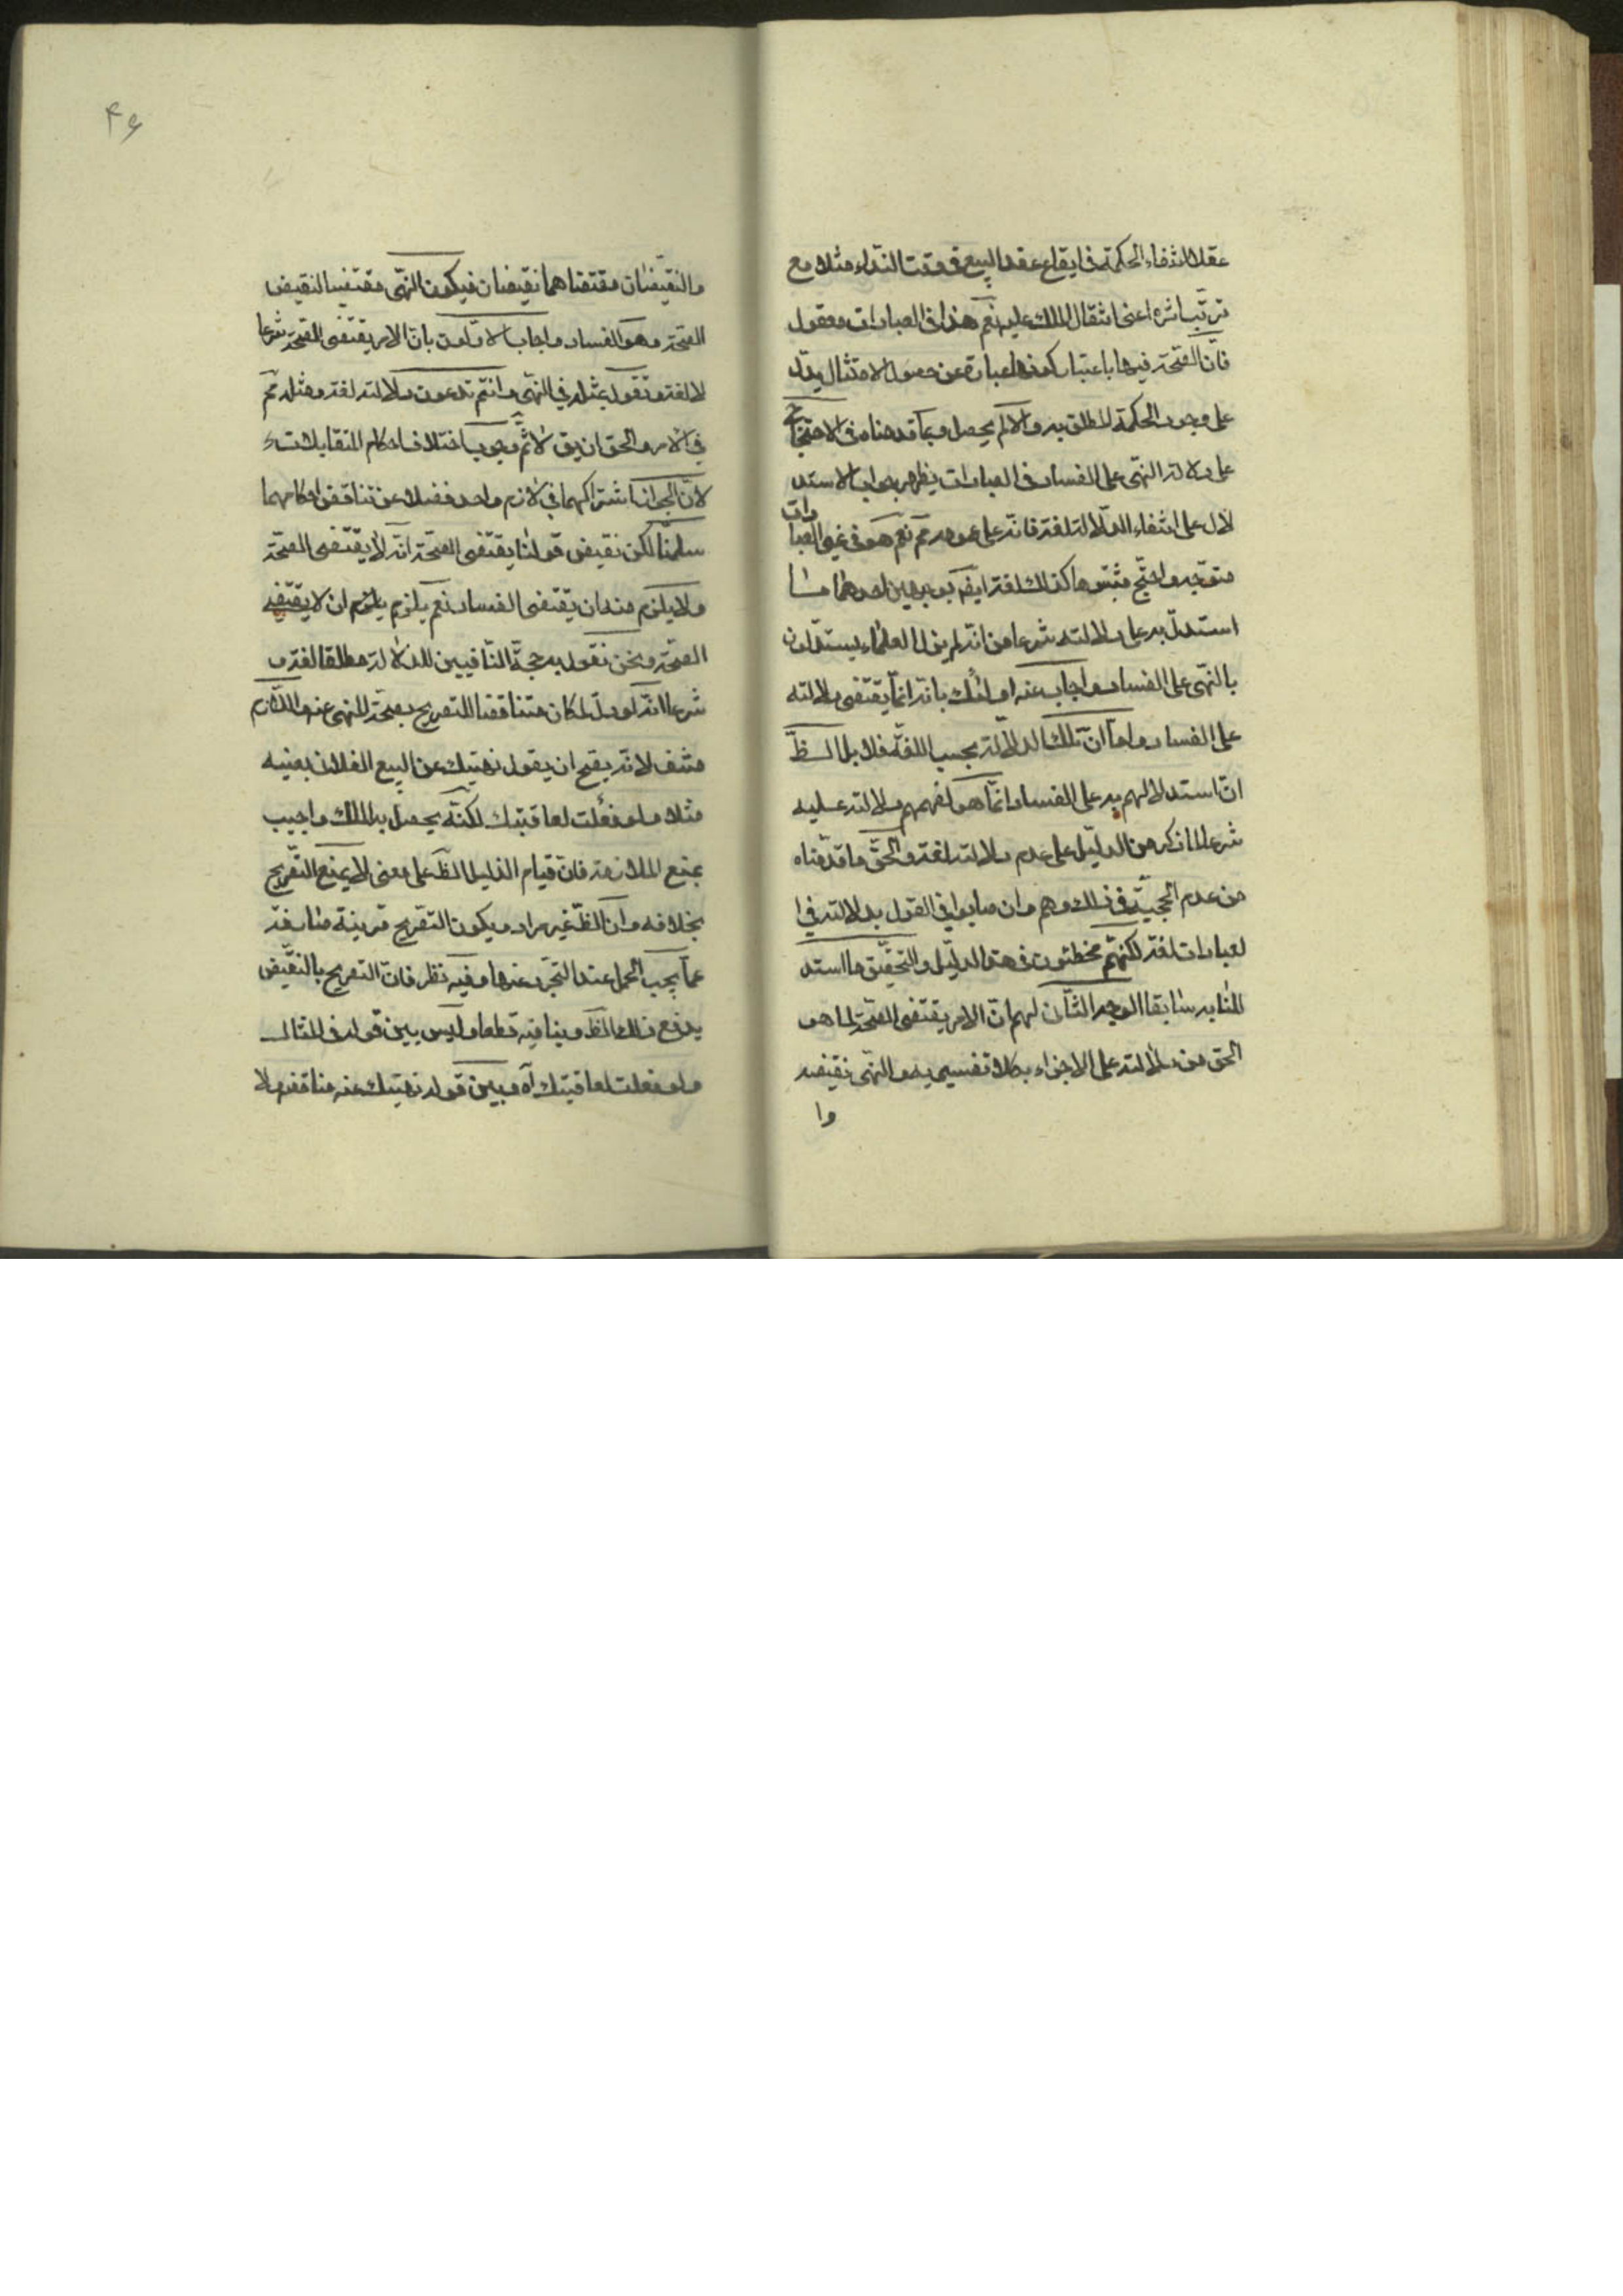 عقلا انتفاء الحكمة فى ايقاع عقد البيع فى وقت النداء مثلا مع
ترتب اثره اعنى انتقال الملك عليه نعم هذا فى العبادات معقول
فان الصحة فيها باعتبار كونها عبارة عن حصول الامتثال يدل
على وجود الحكمة المطلوبة والا لم يحصل وبما قدمناه فى الاحتجاج
على دلالة النهى على الفساد فى العبادات يظهر جواب الاستد
لال على انتفاء الدلالة لغة فانه على عمومه مم نعم هو فى غير العبادات
متوجه واحتج مثبتوها كذلك لغة ايضا بوجهين احدهما ما
استدل به على دلالته شرعا من انه لم يزل العلماء يستدلون
بالنهى على الفساد واجاب عنه اولئك بانه انما يقتضى دلالته
على الفساد واما ان تلك الدلالة بحسب اللغة فلا بل الظ
ان استدلالهم به على الفساد انما هو لفهمهم دلالته عليه
شرعا لما ذكر من الدليل على عدم دلالته لغة والحق ما قدمناه
من عدم الحجية فى ذلك وهم وان صابوا فى القول بدلالته فى ا
لعبادات لغة لكنهم مخطئون فى هذا الدليل والتحقيق ما استد
للنا به سابقا الوجه الثانى لهم ان الامر يقتضى الصحة لما هو
الحق من دلالته على الاجزاء بكلا تفسيريه والنهى نقيضه
وا
۴۶
والنقيضان مقتضاهما نقيضان فيكون النهى مقتضيا لنقيض
الصحة وهو الفساد واجاب الاولون بان الامر يقتضى الصحة شرعا
لا لغة ونقول بمثله فى النهى وانتم تدعون دلالته لغة ومثله مم
فى الامر والحق ان يق لا ثم وجوب اختلاف احكام المتقابلات
لان الجواز اشتراكهما فى لازم واحد فضلا عن تناقض احكامهما
سلمنا لكن نقيض قولنا يقتضى الصحة انه لا يقتضى الصحة
ولا يلزم منه ان يقتضى الفساد نعم يلزم يلزم ان لا يقتضى
الصحة ونحن نقول به حجة النافيين للدلالة مطلقا لغة و
شرعا انه لو دل لكان مناقضا للتصريح بصحة المنهى عنه واللازم
منتف لانه يصح ان يقول نهيتك عن البيع الفلانى بعينه
مثلا ولو فعلت لعاقبتك لكنه يحصل به الملك واجيب
بمنع الملازمة فان قيام الدليل الظ على معنى لا يمنع التصريح
بخلافه وان الظ غير مراد ويكون التصريح قرينة صارفة
عما يجب الحمل عند التجرد عنها وفيه نظر فان التصريح بالنقيض
يدفع ذلك الظ وينافيه قطعا وليس بين قوله فى المثال
ولو فعلت لعاقبتك آه وبين قوله نهيتك عنه مناقضه ولا